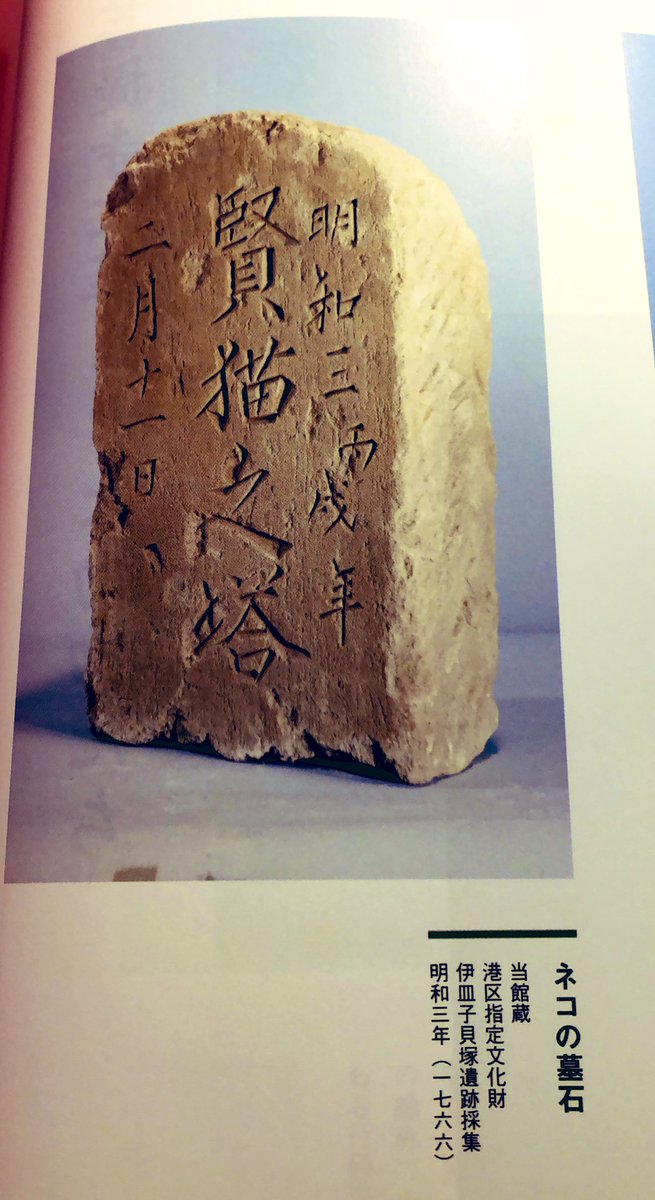 明和三丙戌年
賢猫之塔
二月十一日
ネコの墓石
当館蔵
港区指定文化財
伊皿子貝塚遺跡採集
明和三年（一七六六）